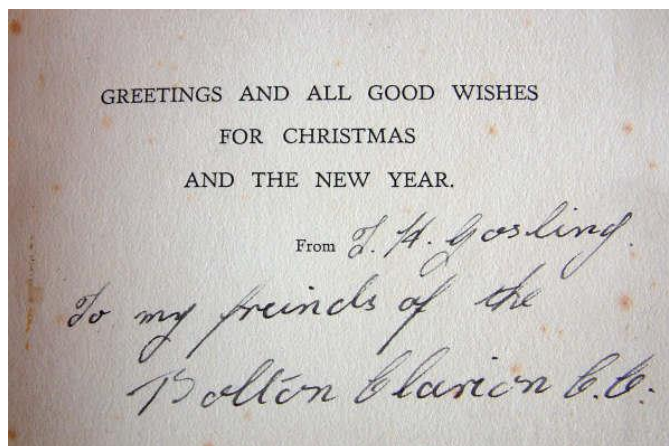 GREETINGS AND ALL GOOD WISHES
FOR CHRISTMAS
AND THE NEW YEAR.
From T. H. Gosling.
To my freinds of the
Bolton Clarion C.C.